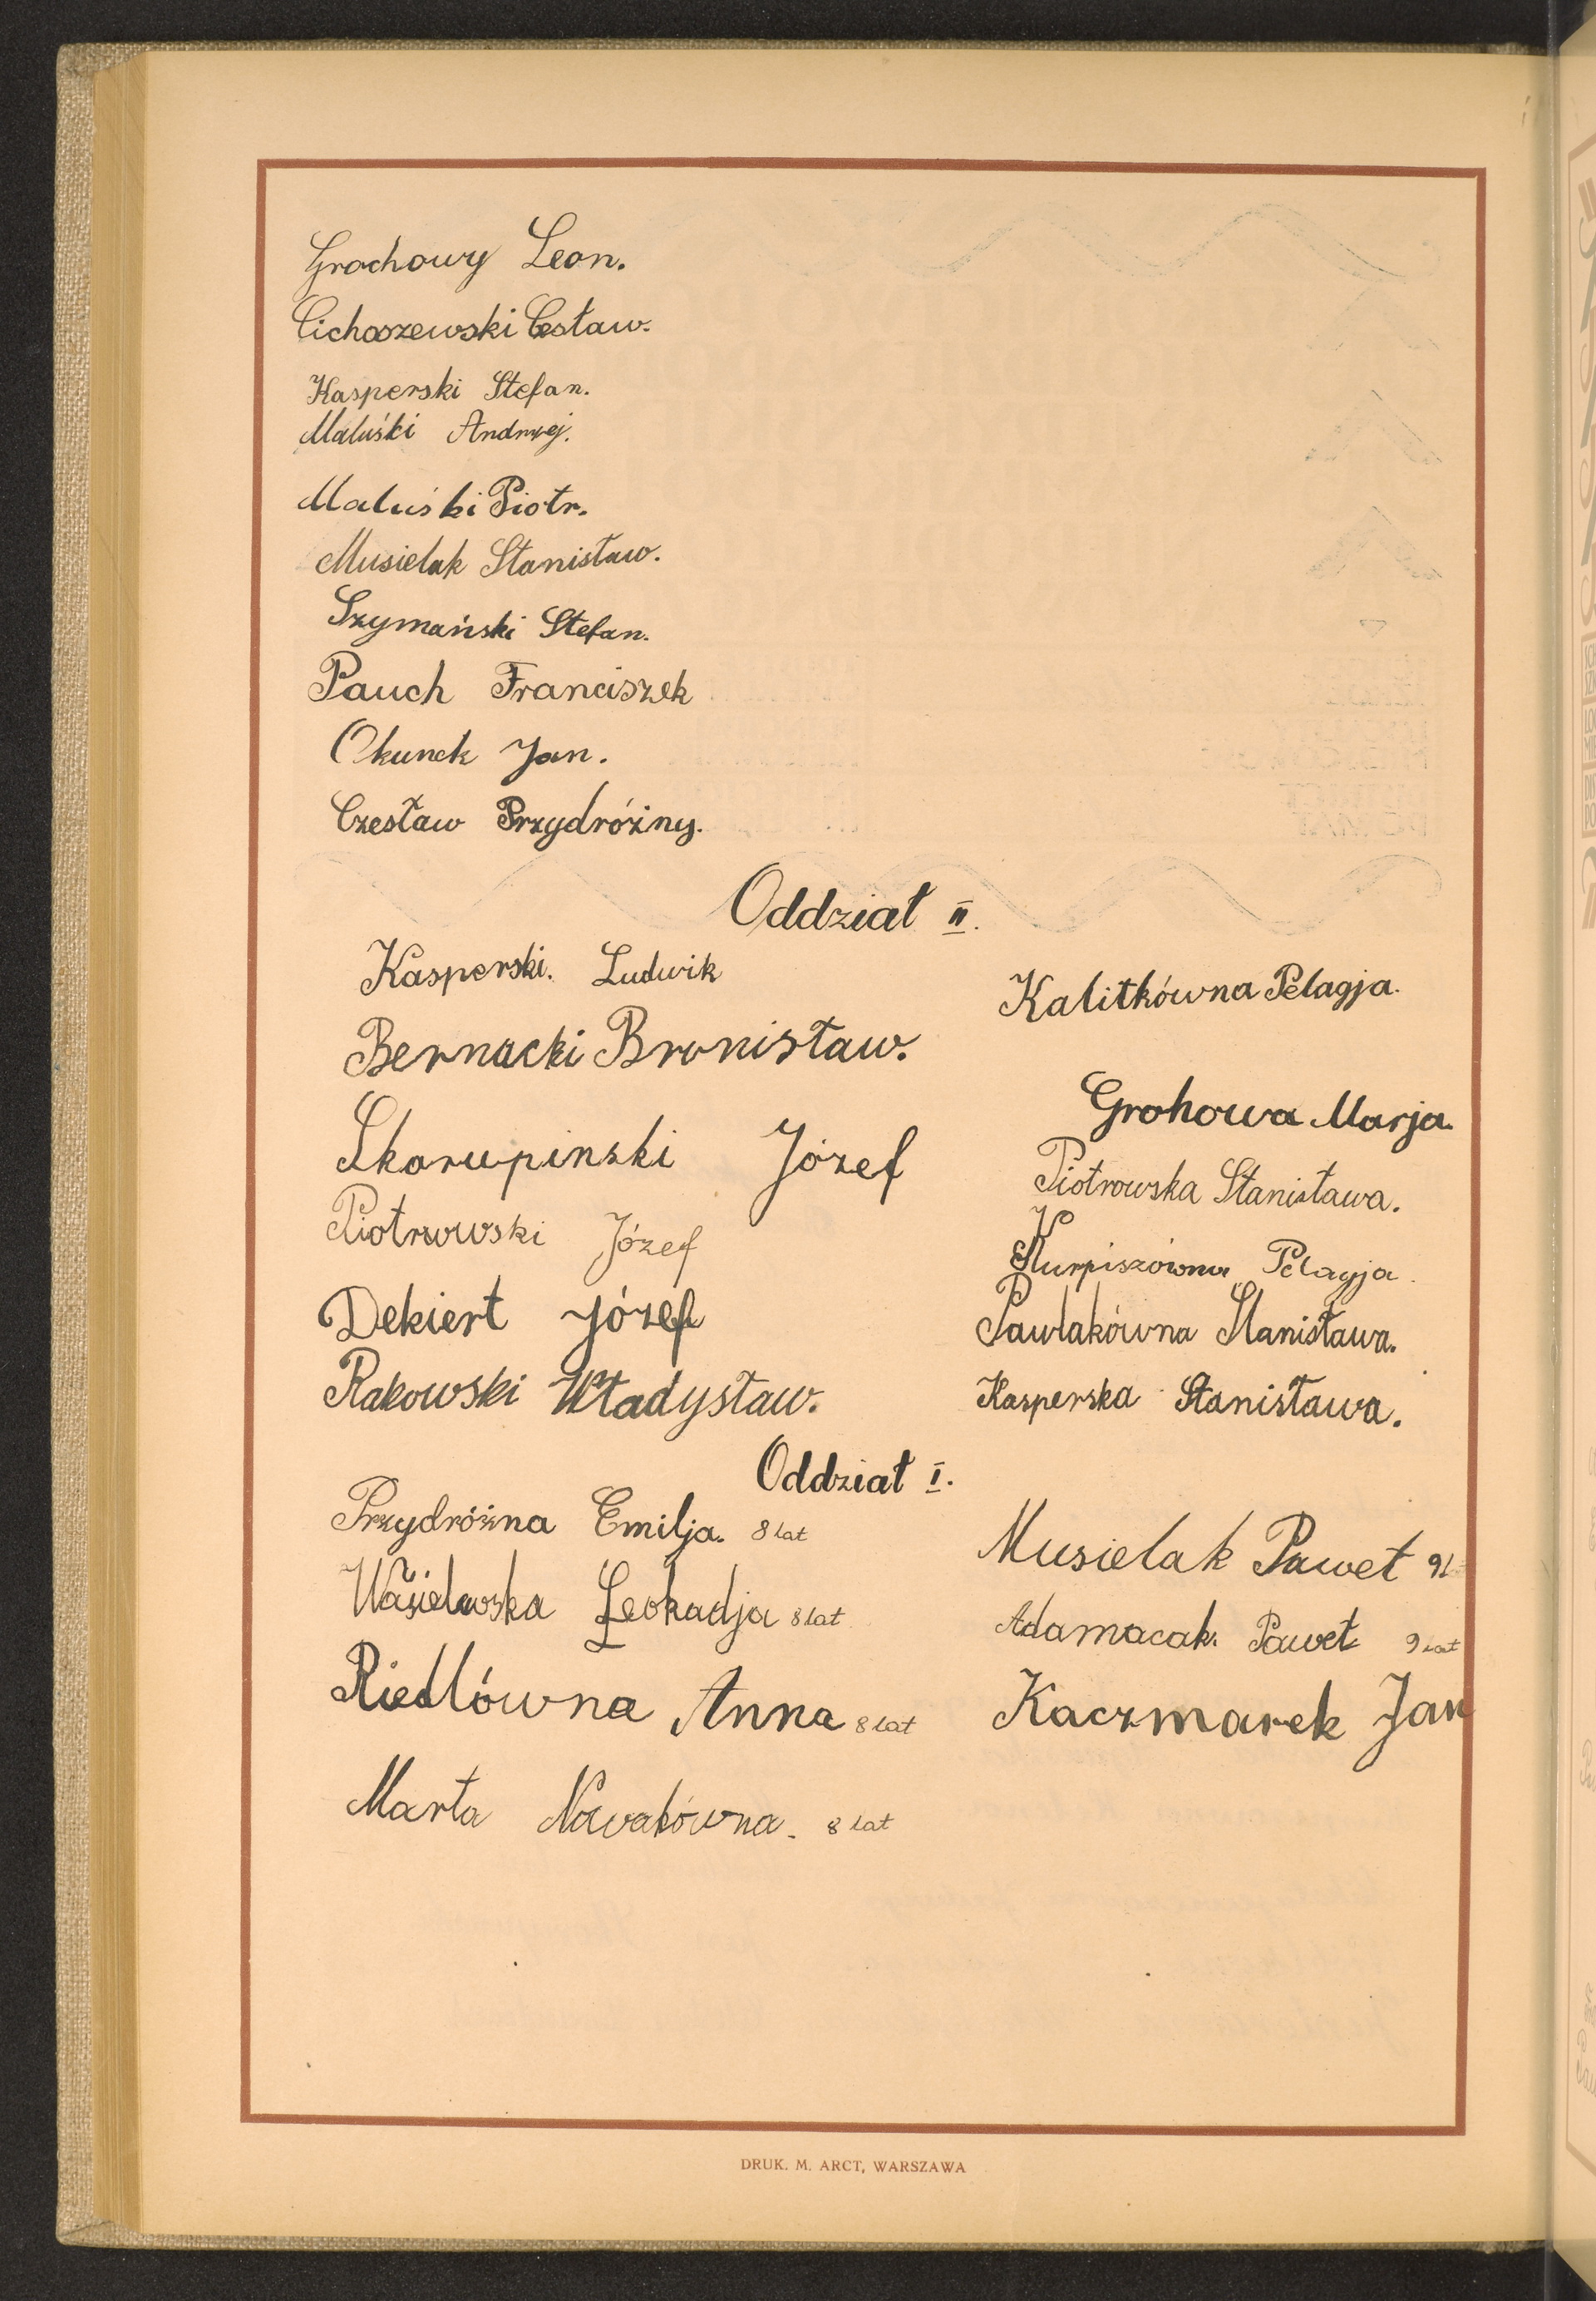 Grochowy Leon.
Cichoszewski Cesław.
Kasperski Stefan.
Maluśki Andrzej.
Maluśki Piotr.
Musielak Stanisław.
Szymański Stefan.
Pauch Franciszek
Okunek Jan.
Czesław Przydróżny.
Oddział II.
Kasperski. Ludwik
Bernacki Bronisław.
Skorupinski Józef
Piotrowski Józef
Dekiert Józef
Rakowski Władysław.
Kalitkówna Pelagja.
Grohowa Marja.
Piotrowska Stanisława.
Kurpiszówna Pelagja.
Pawlakówna Stanisława.
Kasperska Stanisława.
Oddział I.
Przydróżna Emilja. 8 lat
Wasielewska Leokadja 8 lat
Riedlówna Anna 8 lat
Marta Nowakówna. 8 lat
Musielak Paweł 9 l
Adamacak. Paweł 9 lat
Kaczmarek Jan
DRUK. M. ARCT, WARSZAWA